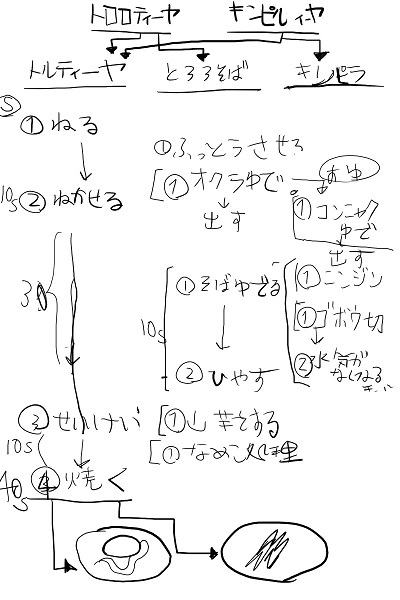 トロロティーヤ
キンピリィーヤ
トルティーヤ
とろろそば
キンピラ
5
① ねる
10s ② ねかせる
30
③ せいけい
10s
40s ④ 焼く
①ふっとうさせる
① オクラゆで
出す
① そばゆでる
10s
② ひやす
① 山芋をする
① なめこ処理
おゆ
① コンニャク
ゆで
出す
① ニンジン
① ゴボウ切
② 水気が
なくなる